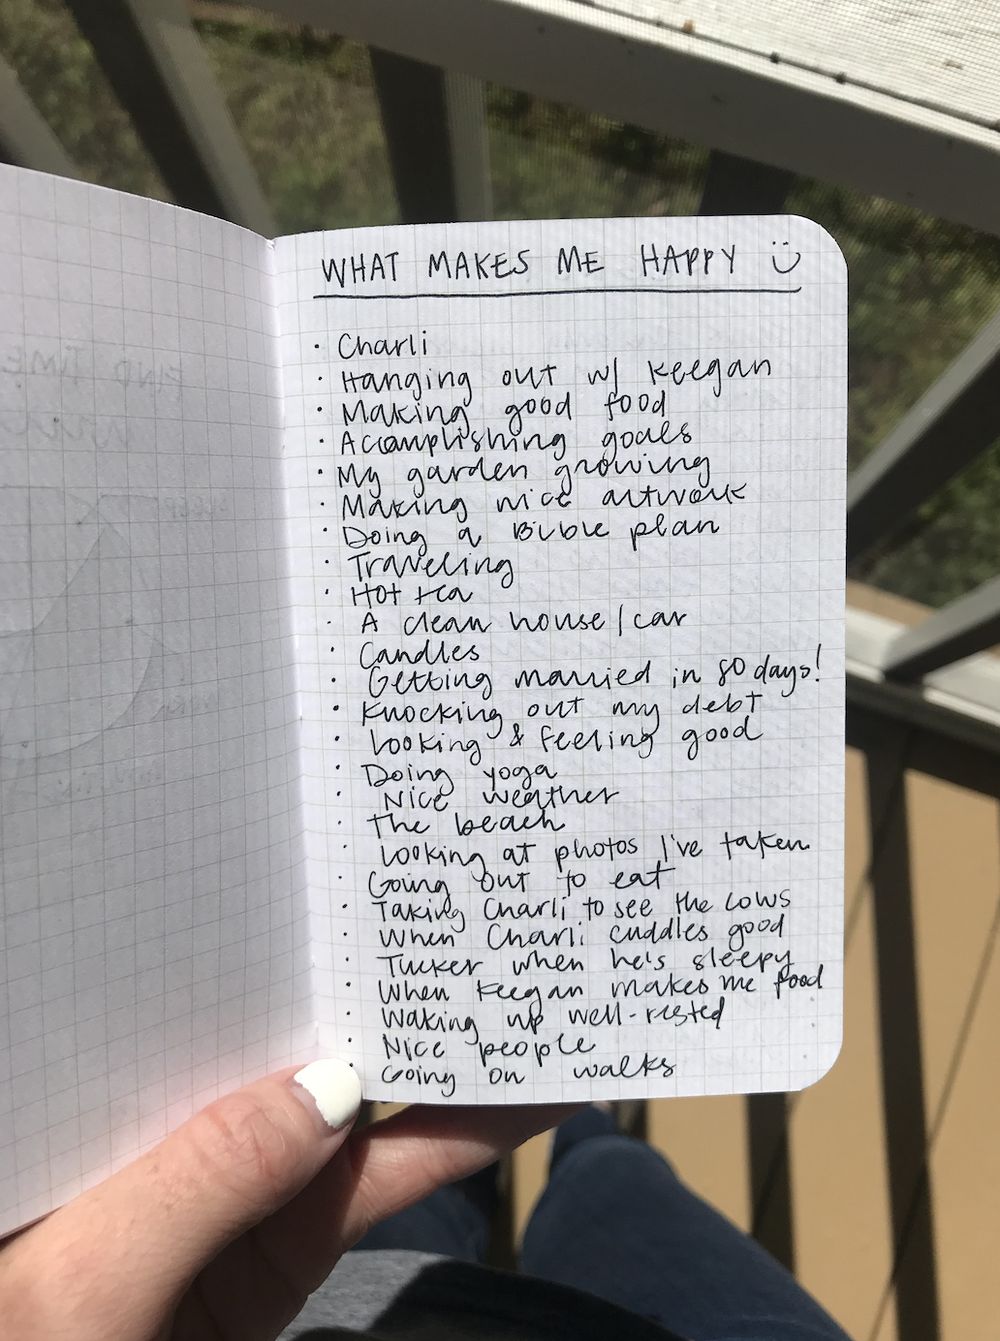 WHAT MAKES ME HAPPY
· Charli
· Hanging out w/ Keegan
· Making good food
· Accomplishing goals
· My garden growing
· Making nice artwork
· Doing a Bible plan
· Traveling
· Hot tea
· A clean house/car
· Candles
· Getting married in 80 days!
· Knocking out my debt
· Looking & feeling good
· Doing yoga
· Nice weather
· The beach
· Looking at photos I've taken
· Going out to eat
· Taking Charli to see the cows
· When Charli cuddles good
· Tucker when he's sleepy
· When Keegan makes me food
· Waking up well-rested
· Nice people
· Going on walks